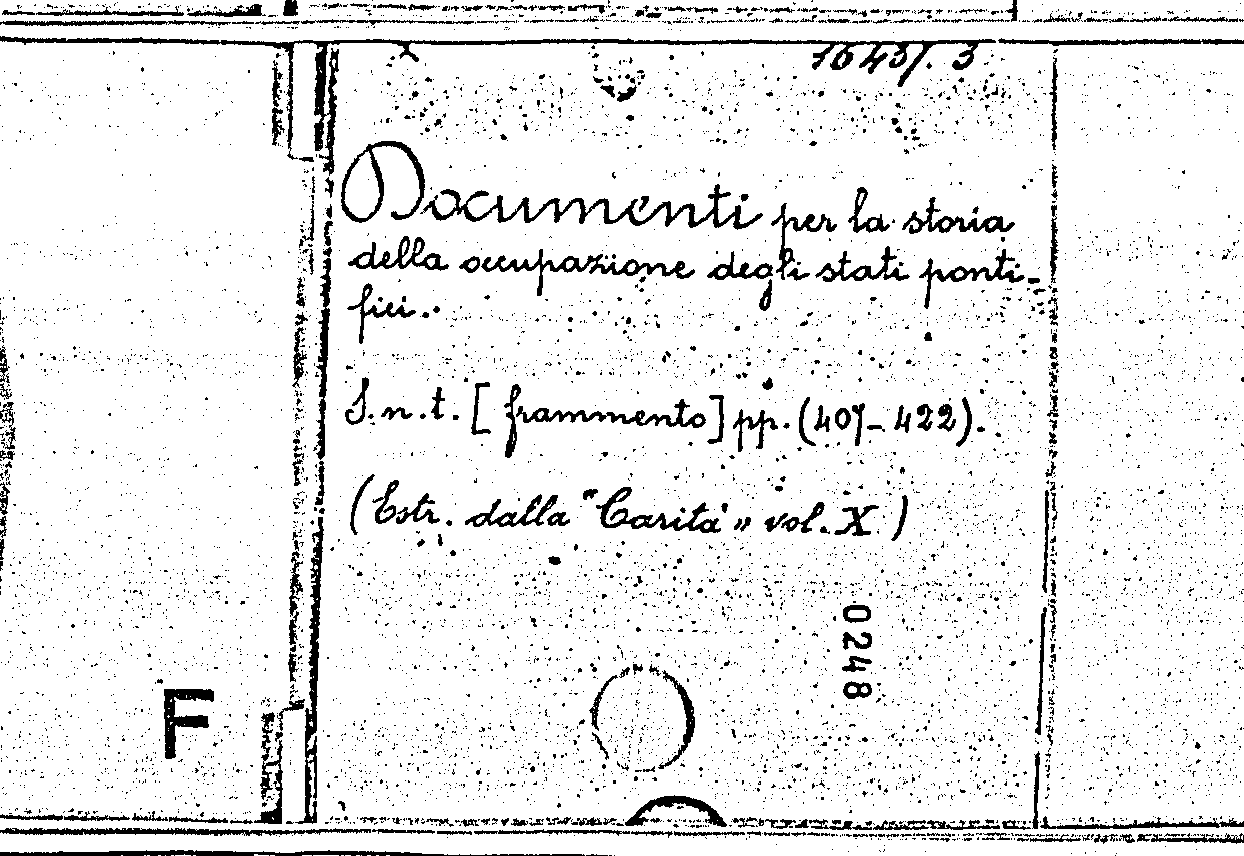 1643/. 3
Documenti per la storia
della occupazione degli stati ponti-
fici.
S.n.t. [frammento] pp. (407-422).
(Estr. dalla "Carità" vol. X)
0248
F